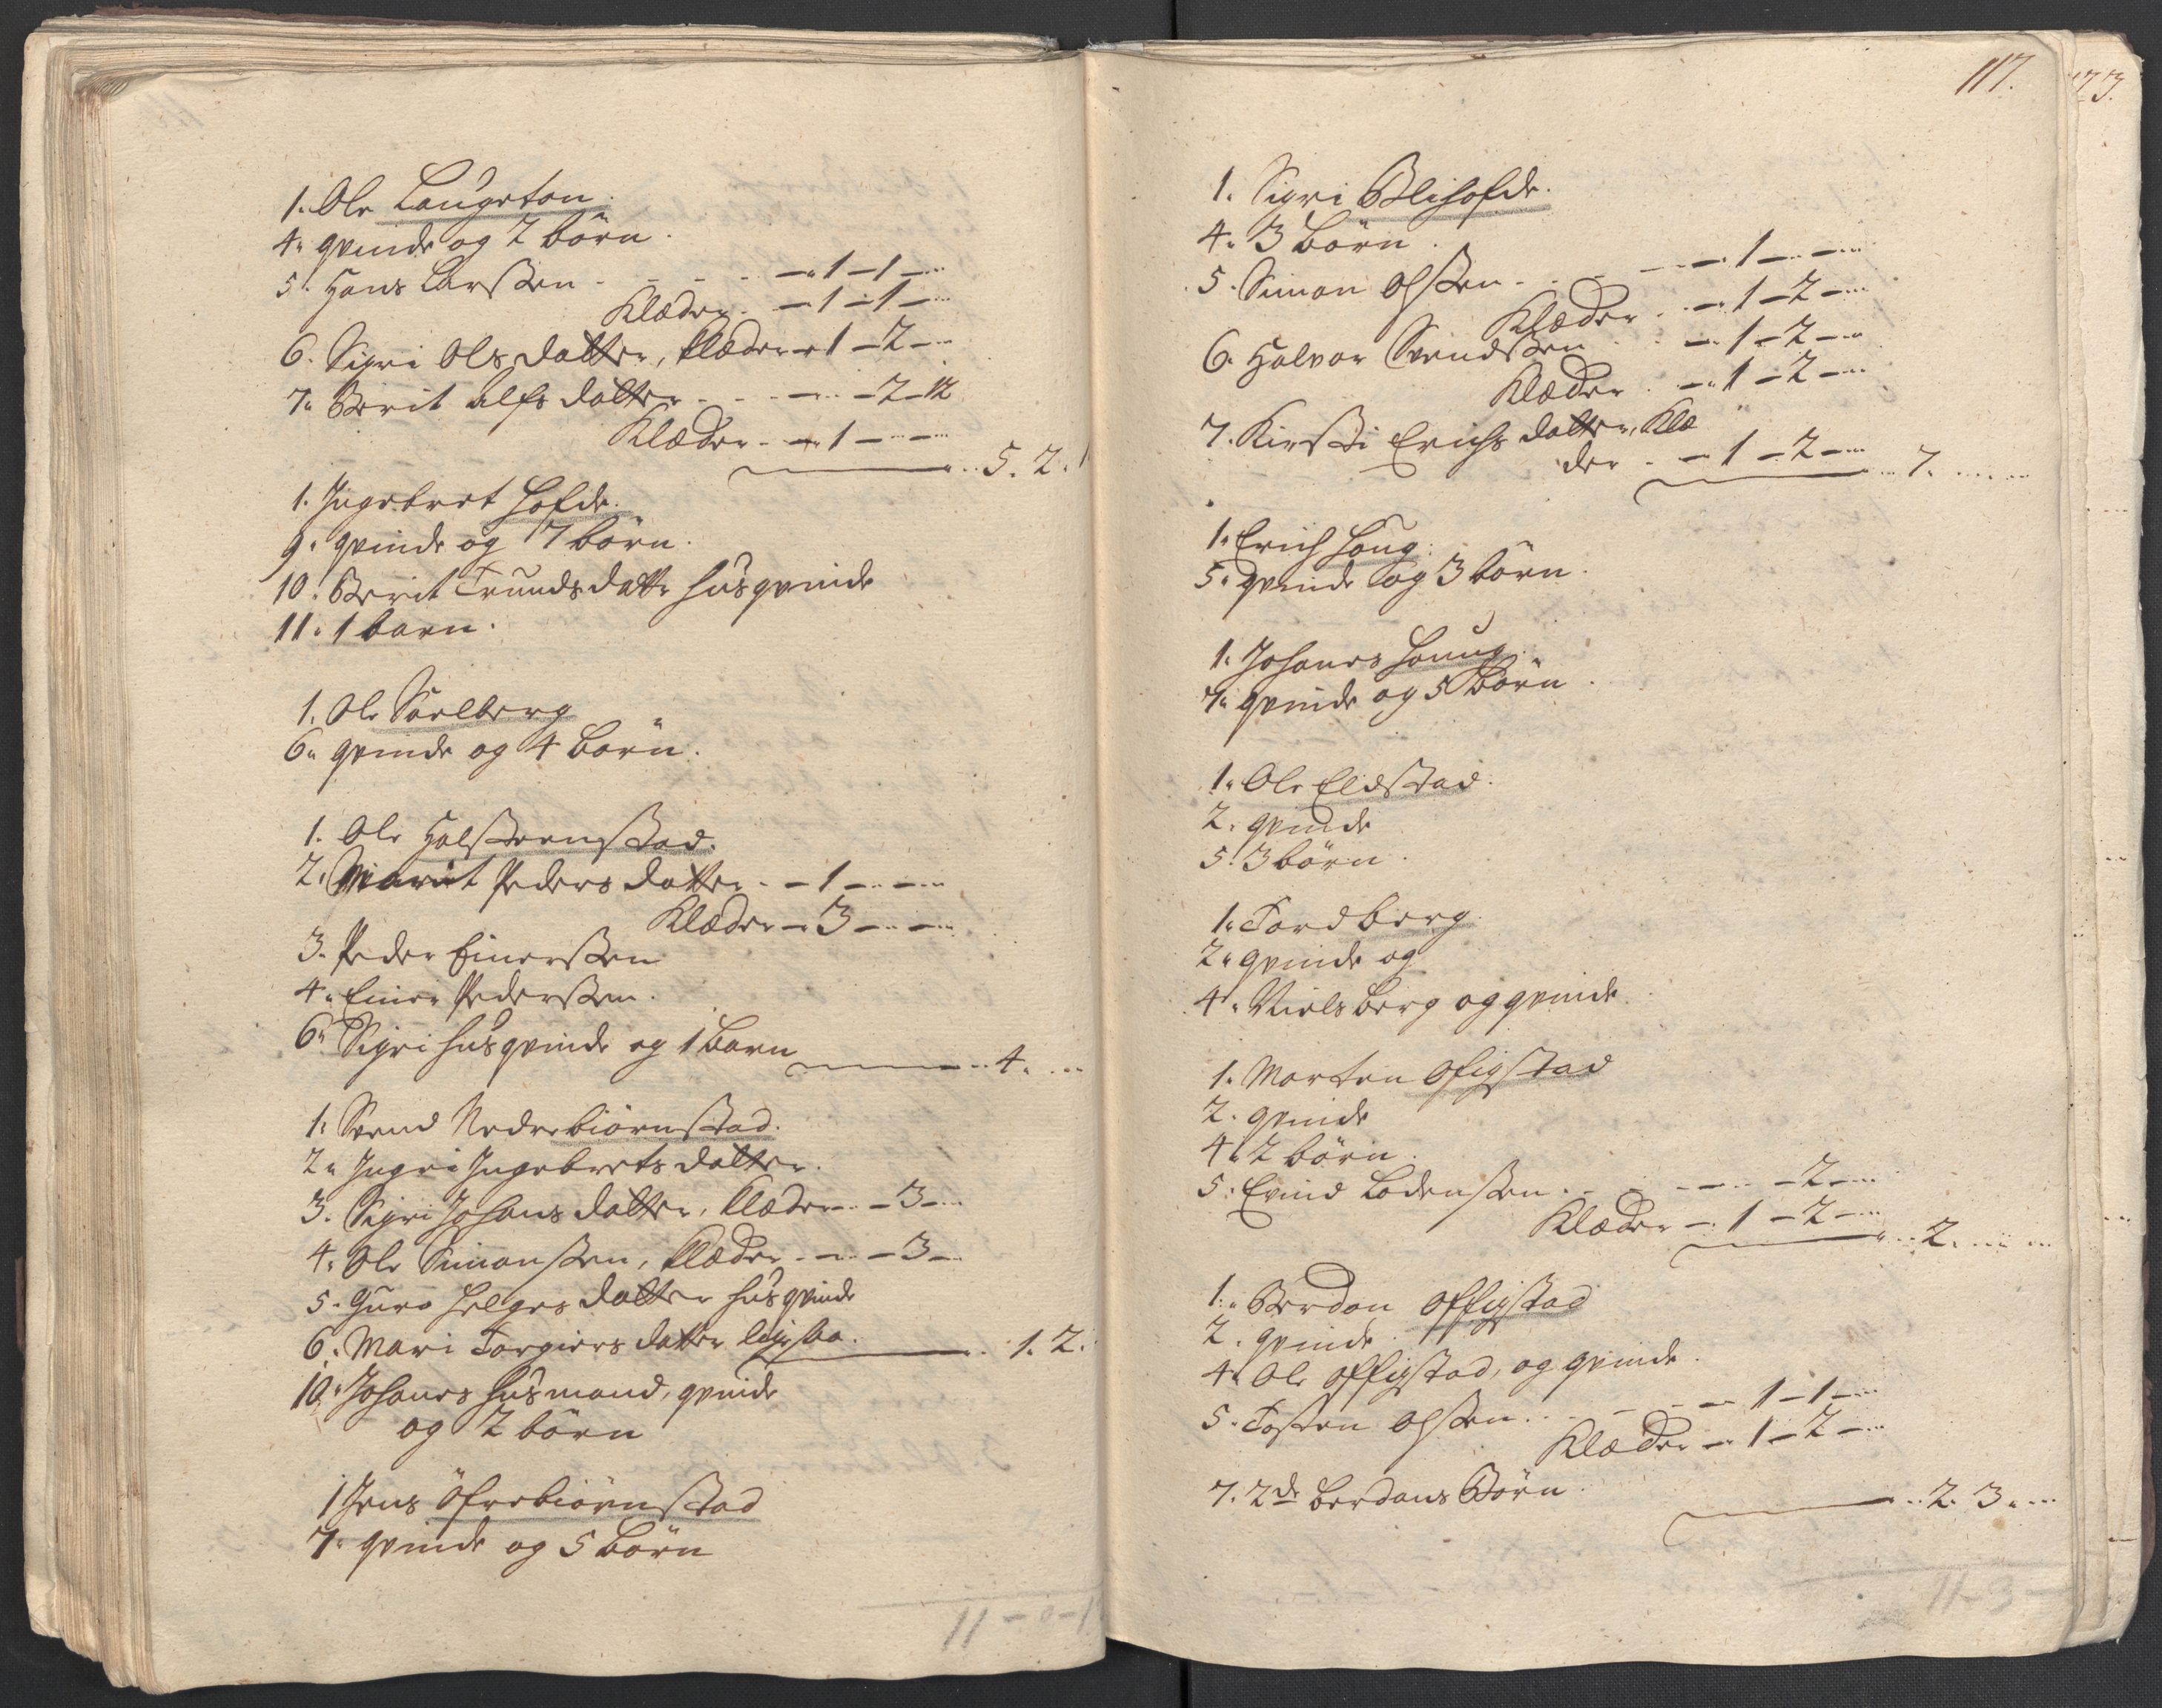 1. Ole Laugeton.
4. qvinde og 2 börn.
5. Hans Larssen - - - - 1 - 1 -
Klæder - 1 - 1 -
6. Sigri Ols datter, klæder - 1 - 2 -
7. Berit Alfs datter - - - 2 - 12
Klæder - - 1 - -
5. 2. 1
1. Ingebret Hofde.
9. qvinde og 7 börn.
10. Berit Trunds datt. huusqvinde
11. 1 barn.
1. Ole Söelberg
6. qvinde og 4 börn.
1. Ole Halsteenstad.
2. Marit Peders datter - - 1 - -
Klæder - 3 - -
3. Peder Einerssen
4. Einer Pederssen.
6. Sigri huusqvinde og 1 barn
4.
1. Svend Nedrebiörnstad.
2. Ingri Ingebrets datter.
3. Sigri Johans datter, klæder - - 3 -
4. Ole Simonssen, klæder - - - 3 -
5. Guro Helges datter huusqvinde
6. Mari Torgiers datter
1. 2.
10. Johanes huusmand, qvinde
og 2 börn
1 Jens Öfrebiörnstad
7. qvinde og 5 börn
11 - 0 - 1
117.
1. Sigri Blihofde.
4. 3 börn.
5. Simon Olssen - - - - 1 - -
Klæder - 1 - 2 -
6. Halvor Svendssen - - 1 - 2 -
Klæder - 1 - 2 -
7. Kirsti Erichs datter, Klæ
der - - 1 - 2 -
7.
1. Erich Houg.
5. qvinde og 3 börn.
1. Johanes Houug.
7. qvinde og 5 börn.
1. Ole Eldstad.
2. qvinde
5. 3 börn.
1. Tord berg.
2. qvinde og
4. Niels berg og qvinde.
1. Morten Ofigstad
2. qvinde
4. 2 börn.
5. Evind Lodenssen - - - - 2 -
Klæder - 1 - 2 -
2.
1. Berdon Offigstad
2. qvinde.
4. Ole Offigstad, og qvinde.
5. Tosten Olssen - - - - 1 - 1 -
Klæder - 1 - 2 -
7. 2de berdons Börn.
2. 3.
11 - 3 -
173.